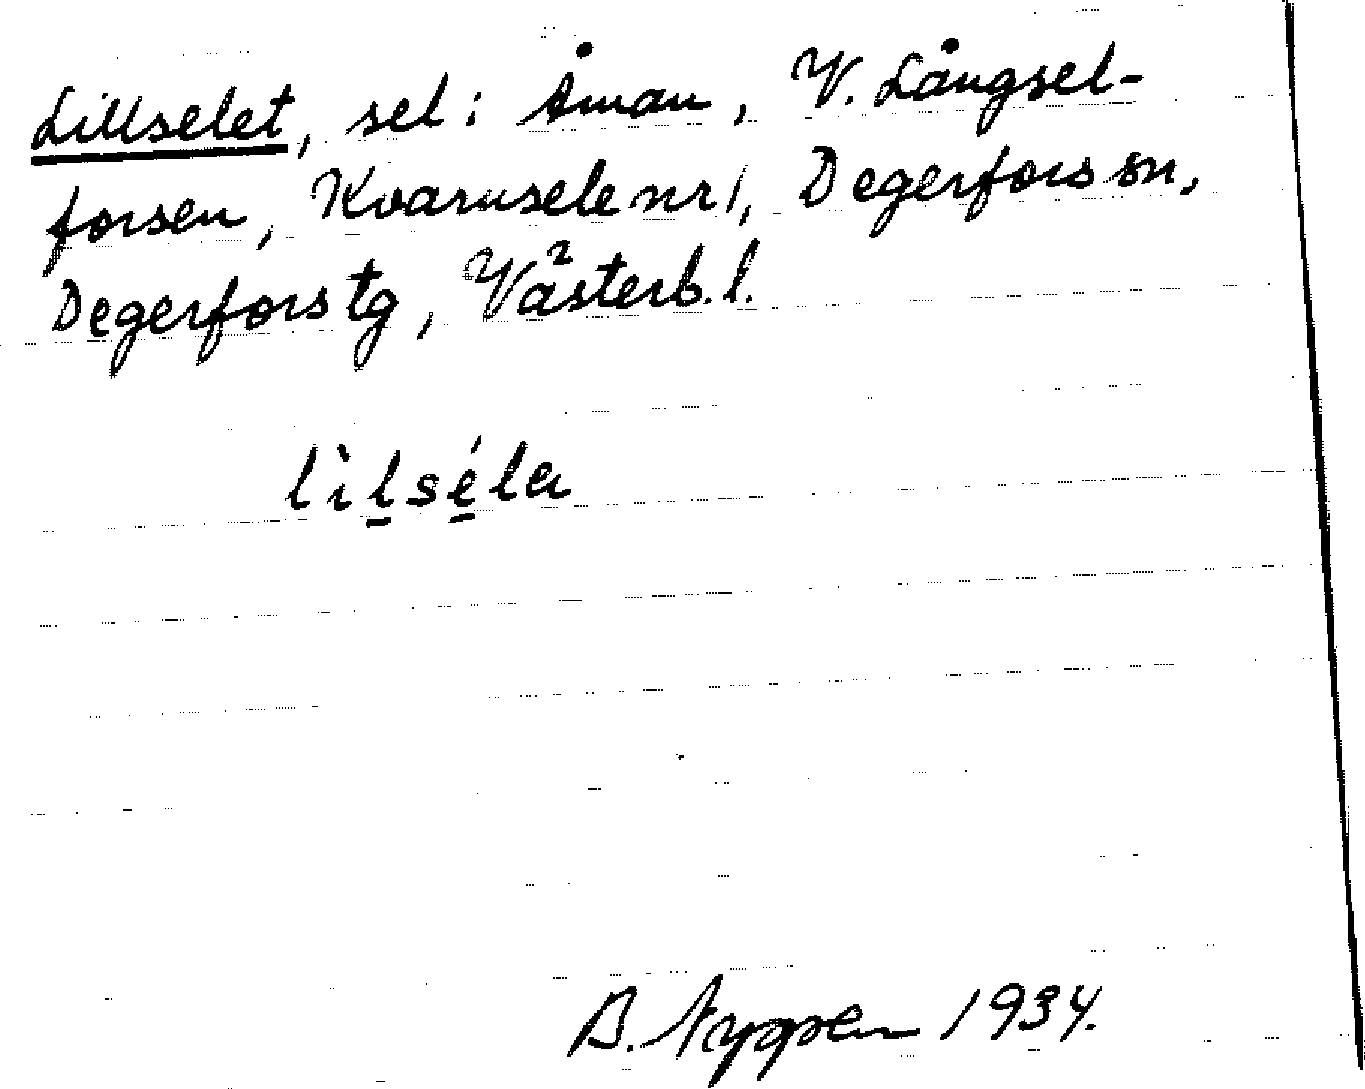 Lillselet, sel i Åman, V. Långsel-
forsen, Kvarnsele nr 1, Degerfors sn,
Degerfors tg, Västerb. l.
lìlséla
B. 1934.